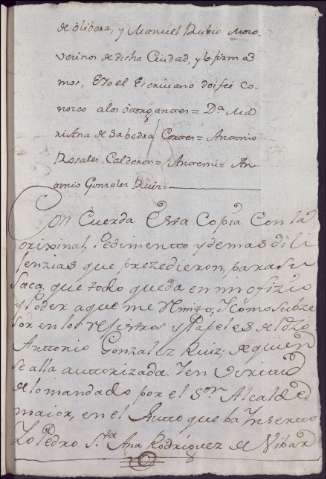 de olibera, y Manuel Rubio Moro,
Vecinos de dicha Ciudad, y lo firma
mos, E Yo el Escrivano doi fee co-
nozco a los otorgantes = Da. Ma-
riana de Saabedra = Antonio
Rosales Calderon = Antemi = An-
tonio Gonzalez Ruiz
Con Cuerda Esta Copia Con la
orixinal, Pedimentto y demas dili
jenzias que prezedieron, para su
saca, que todo queda en mi ofizio
y Poder a que me Remito, y Como subze
sor en los rexistros y Papeles de
Antonio Gonzalez Ruiz, de quien
se alla autorizada, Y en virtud
de lo mandado por el Sor. Alcalde
maior, en el Auto que ba Inserto
Yo Pedro Sta. Ana Rodriguez de Vibar